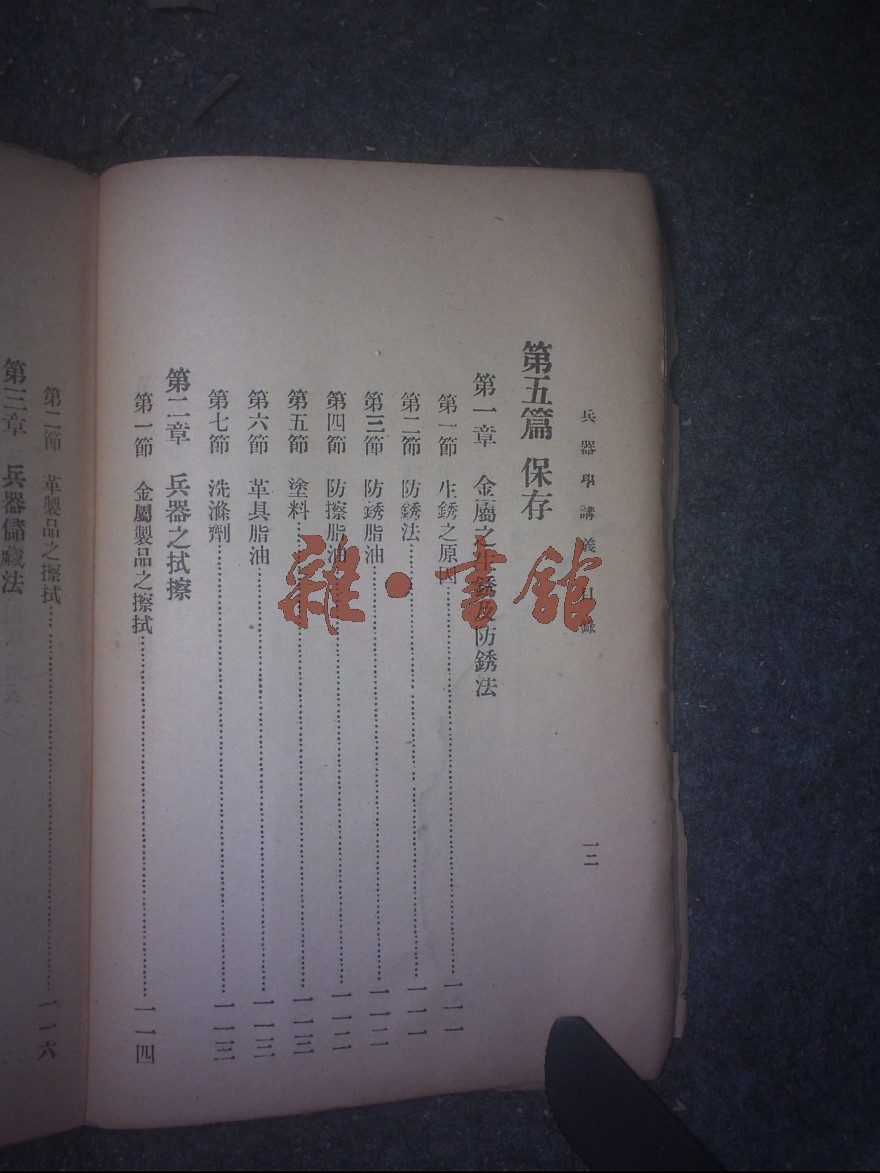 兵器學講義目錄
一二
第五篇 保存
第一章 金屬之生銹及防銹法
第一節 生銹之原因…………一一一
第二節 防銹法…………一一一
第三節 防銹脂油…………一一二
第四節 防擦脂油…………一一二
第五節 塗料…………一一三
第六節 革具脂油…………一一三
第七節 洗滌劑…………一一三
第二章 兵器之拭擦
第一節 金屬製品之擦拭…………一一四
第二節 革製品之擦拭…………一一六
第三章 兵器儲藏法
雜·書館